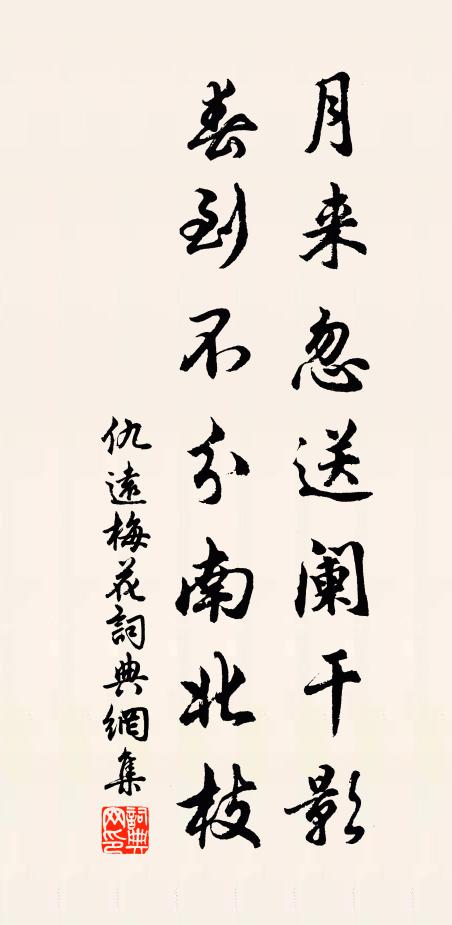 月来忽送阑干影
春到不分南北枝
仇遠梅花詞典網集
詞典网印